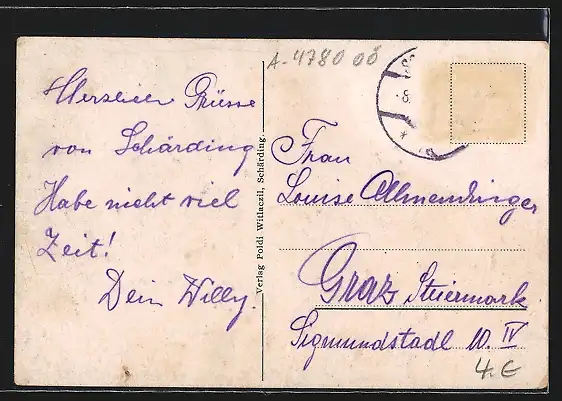 A-4780 OÖ
Herzlichen Grüsse
von Schärding
Habe nicht viel
Zeit!
Dein Willy.
Verlag Poldi Witlaczil, Schärding.
Frau
Louise Allmendinger
Graz Steiermark
Sigmundstadl 10. IV
4.€